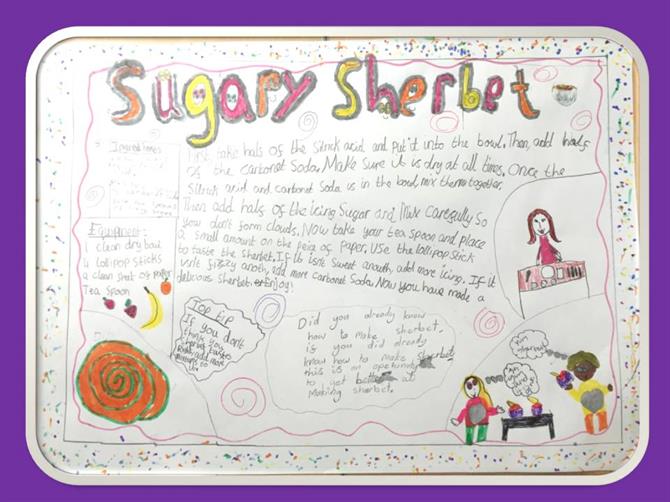 Sugary Sherbet
First, take hals of the sitrick acid and Put it into the bowl. Then, add hals
of the carbonet Soda. Make sure it is dry at all times. Once the
Sitrick acid and carbonet Soda is in the bowl, mix them together.
Then add hals of the icing Sugar and Mix Caresully So
you don't Sorm clouds. Now take your tea spoon and place
a small amount on the peice of Paper. Use the lollipop Stick
to taste the Sherbet. If its isn't Sweet anouth, add more icing. If it
isn't fizzy anoth, add more carbonet Soda. Now you have made a
delicious Sherbet. Enjoy!
Ingredients
Equipment:
1 clean dry
4 lollipop sticks
a clean sheet of paper
Tea Spoon
Top tip
If you don't
think you
sherbet tastes
Right, add more
Did you already know
how to make sherbet,
is you did already
know how to make sherbet
this is an
to get better at
making sherbet.